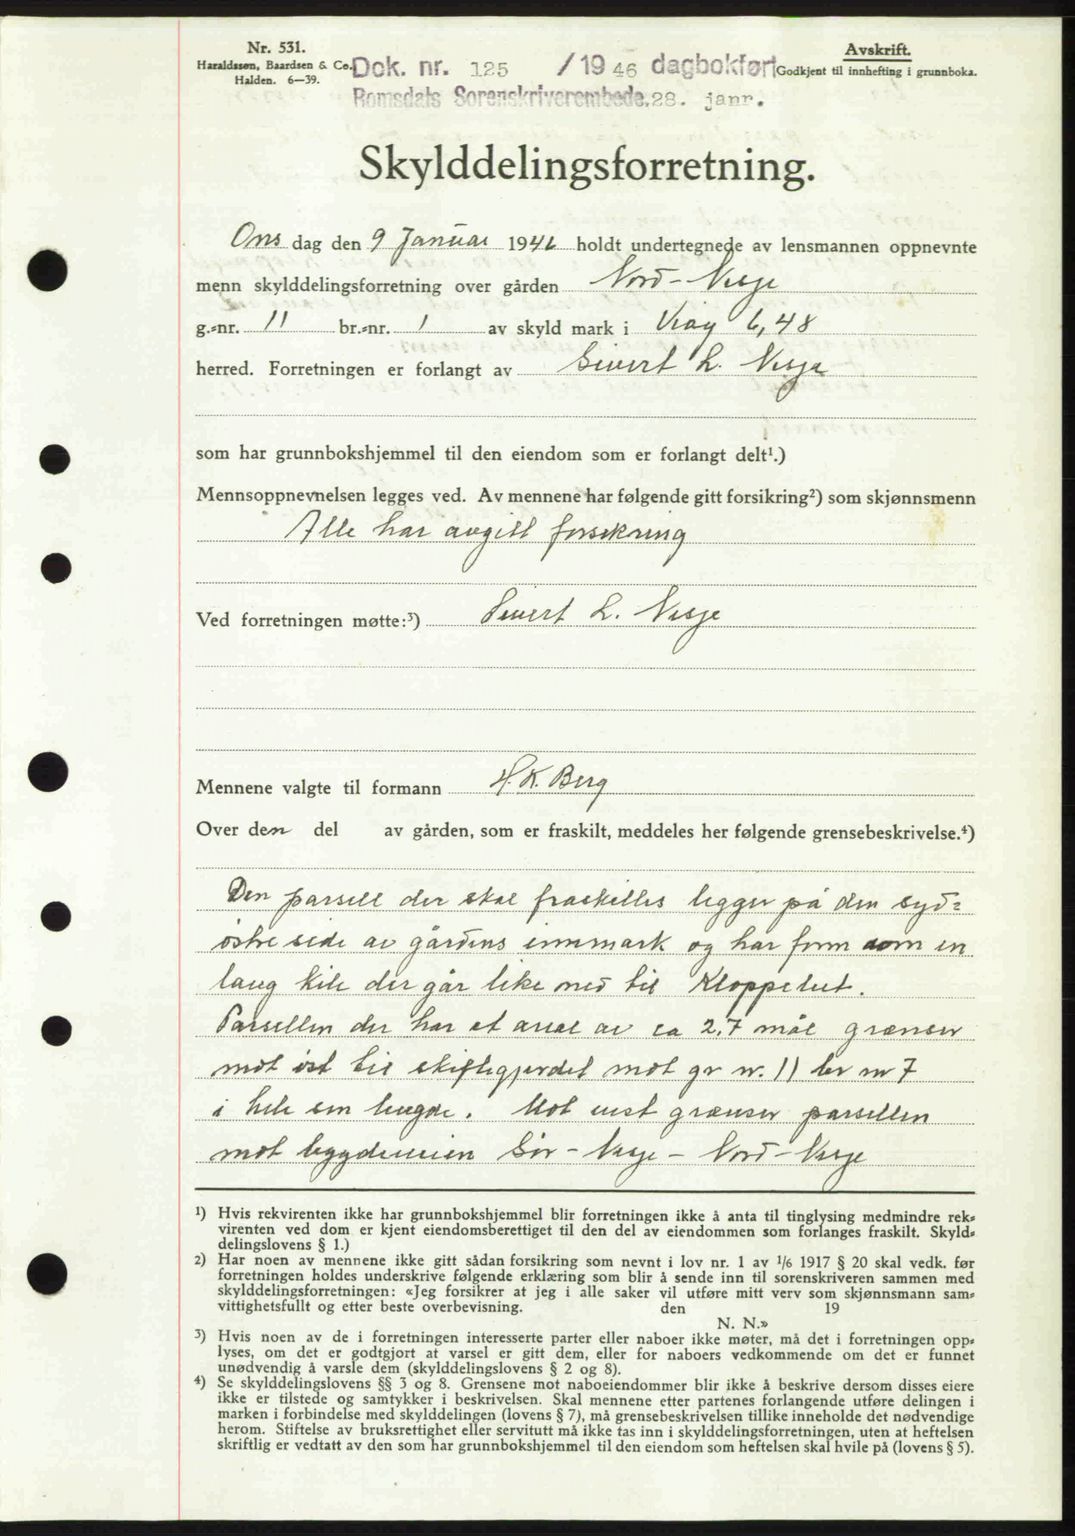 Nr. 531.
Haraldssen, Baardsen & Co.
Halden. 6—39.
Dok. nr. 125 /1946 dagbokført
Romsdals Sorenskriverembede, 28. janr.
Avskrift.
Godkjent til innhefting i grunnboka.
Skylddelingsforretning.
Ons dag den 9 Januar 1946 holdt undertegnede av lensmannen oppnevnte
menn skylddelingsforretning over gården Nord-Nesje
g.-nr. 11 br.-nr. 1 av skyld mark i Veøy 6,48
herred. Forretningen er forlangt av Sivert L. Nesje
som har grunnbokshjemmel til den eiendom som er forlangt delt¹.)
Mennsoppnevnelsen legges ved. Av mennene har følgende gitt forsikring²) som skjønnsmenn
Alle har avgitt forsikring
Ved forretningen møtte:³) Sivert L. Nesje
Mennene valgte til formann H. K. Berg
Over den del av gården, som er fraskilt, meddeles her følgende grensebeskrivelse.⁴)
Den parsell der skal fraskilles legger på den syd=
østre side av gårdens innmark og har form som en
lang kile der går like ned til Kloppelut.
Parsellen der har et areal av ca 2,7 mål grænser
mot øst til skiftegjerdet mot gr nr. 11 br nr 7
i hele sin lengde. Mot vest grænser parsellen
mot bygdeveien Sør-Nesje - Nord-Nesje
¹) Hvis rekvirenten ikke har grunnbokshjemmel blir forretningen ikke å anta til tinglysing medmindre rek-
virenten ved dom er kjent eiendomsberettiget til den del av eiendommen som forlanges fraskilt. Skyld-
delingslovens § 1.)
²) Har noen av mennene ikke gitt sådan forsikring som nevnt i lov nr. 1 av 1/6 1917 § 20 skal vedk. før
forretningen holdes underskrive følgende erklæring som blir å sende inn til sorenskriveren sammen med
skylddelingsforretningen: «Jeg forsikrer at jeg i alle saker vil utføre mitt verv som skjønnsmann sam-
vittighetsfullt og etter beste overbevisning. den 19
N. N.»
³) Hvis noen av de i forretningen interesserte parter eller naboer ikke møter, må det i forretningen opp-
lyses, om det er godtgjort at varsel er gitt dem, eller for naboers vedkommende om det er funnet
unødvendig å varsle dem (skylddelingslovens § 2 og 8).
⁴) Se skylddelingslovens §§ 3 og 8. Grensene mot naboeiendommer blir ikke å beskrive dersom disses eiere
ikke er tilstede og samtykker i beskrivelsen. Skal mennene etter partenes forlangende utføre delingen i
marken i forbindelse med skylddelingen (lovens § 7), må grensebeskrivelsen tillike inneholde det nødvendige
herom. Stiftelse av bruksrettighet eller servitutt må ikke tas inn i skylddelingsforretningen, uten at heftelsen
skriftlig er vedtatt av den som har grunnbokshjemmel til den eiendom som heftelsen skal hvile på (lovens § 5).